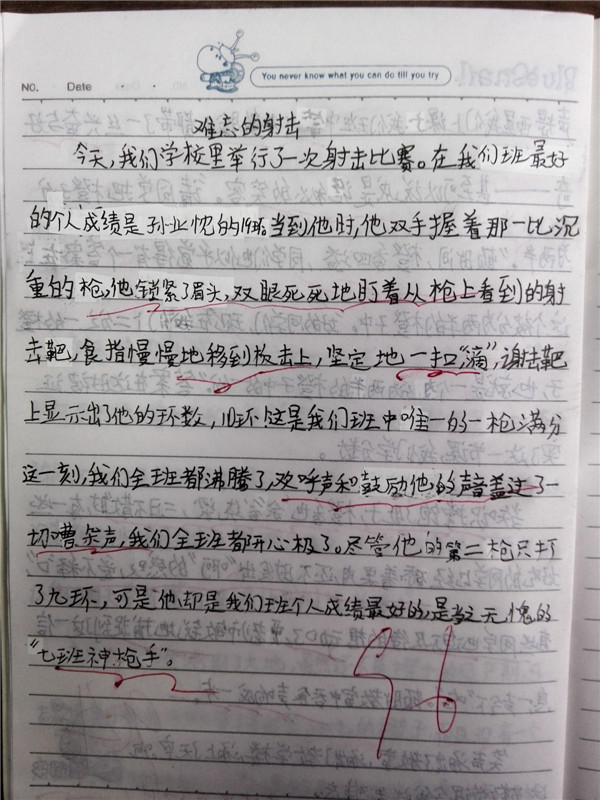 NO.
Date
You never know what you can do till you try
难忘的射击
今天,我们学校里举行了一次射击比赛。在我们班最好
的个人成绩是孙业忱的19环。当到他时,他双手握着那一比沉
重的枪,他锁紧了眉头,双眼死死地盯着从枪上看到的射
击靶,食指慢慢地移到板击上,坚定地一扣,“滴”,射击靶
上显示出了他的环数,10环!这是我们班中唯一的一枪满分
这一刻,我们全班都沸腾了,欢呼声和鼓励他的声音盖过了一
切嘈杂声,我们全班都开心极了。尽管他的第二枪只打
了九环,可是他却是我们班个人成绩最好的,是当之无愧的
“七班神枪手”。